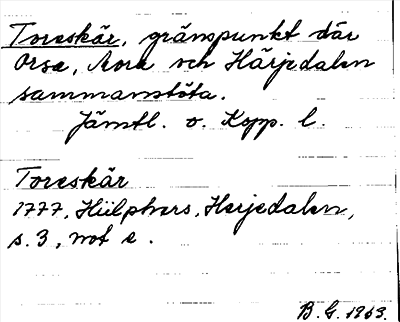 Toreskär, gränspunkt där
Orsa, Mora och Härjedalen
sammanstöta.
Jämtl. o. Kopp. l.
Toreskär
1777, Hülphers, Herjedalen,
s. 3, not e.
B. G. 1963.